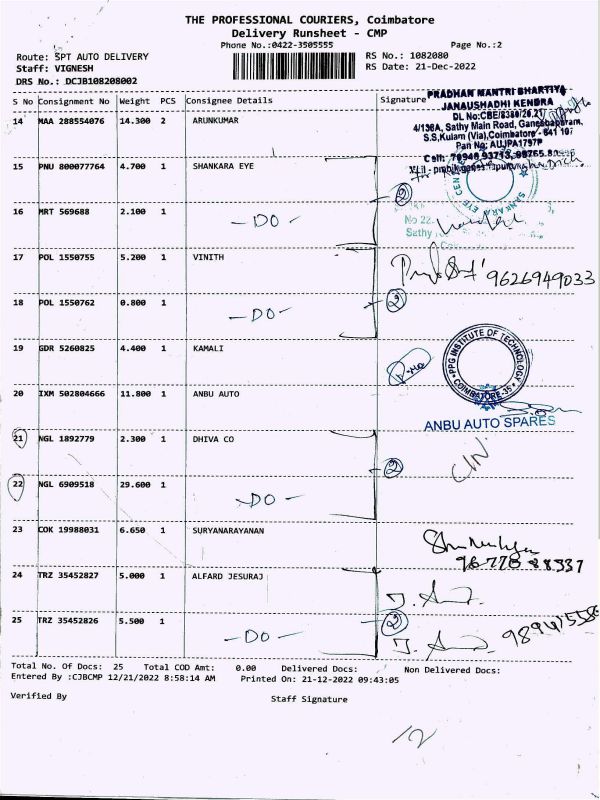 THE PROFESSIONAL COURIERS, Coimbatore
Delivery Runsheet - CMP
Phone No.:0422-3505555 Page No.:2
Route: SPT AUTO DELIVERY RS No.: 1082080
Staff: VIGNESH RS Date: 21-Dec-2022
DRS No.: DCJB108208002
S No Consignment No Weight PCS Consignee Details Signature
PRADHAN MANTRI BHARTIYA
JANAUSHADHI KENDRA
14 MAA 288554076 14.300 2 ARUNKUMAR
4/136A, Sathy Main Road, Ganeshapuram,
S.S,Kulam (Via),Coimbatore - 641 107
Pan No: AUJPA1797P
15 PNU 800077764 4.700 1 SHANKARA EYE
2
16 MRT 569688 2.100 1 -DO-
No 22
Sathy
17 POL 1550755 5.200 1 VINITH
9626949033
18 POL 1550762 0.800 1 -DO- 2
19 GDR 5260825 4.400 1 KAMALI
PPG INSTITUTE OF TECHNOLOGY
COIMBATORE-35
20 IXM 502804666 11.800 1 ANBU AUTO
ANBU AUTO SPARES
21 NGL 1892779 2.300 1 DHIVA CO
2
22 NGL 6909518 29.600 1 -DO-
23 COK 19988031 6.650 1 SURYANARAYANAN
24 TRZ 35452827 5.000 1 ALFARD JESURAJ
25 TRZ 35452826 5.500 1 -DO- 2
Total No. Of Docs: 25 Total COD Amt: 0.00 Delivered Docs: Non Delivered Docs:
Entered By :CJBCMP 12/21/2022 8:58:14 AM Printed On: 21-12-2022 09:43:05
Verified By Staff Signature
12